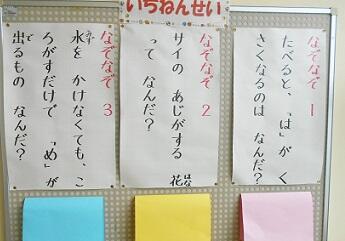 いちねんせい
なぞなぞ 1
たべると、「は」が く
さくなるのは なんだ?
なぞなぞ 2
サイの あじがする 花
はな
って なんだ?
なぞなぞ 3
水を かけなくても、こ
みず
ろがすだけで 「め」が
出るもの なんだ?
で